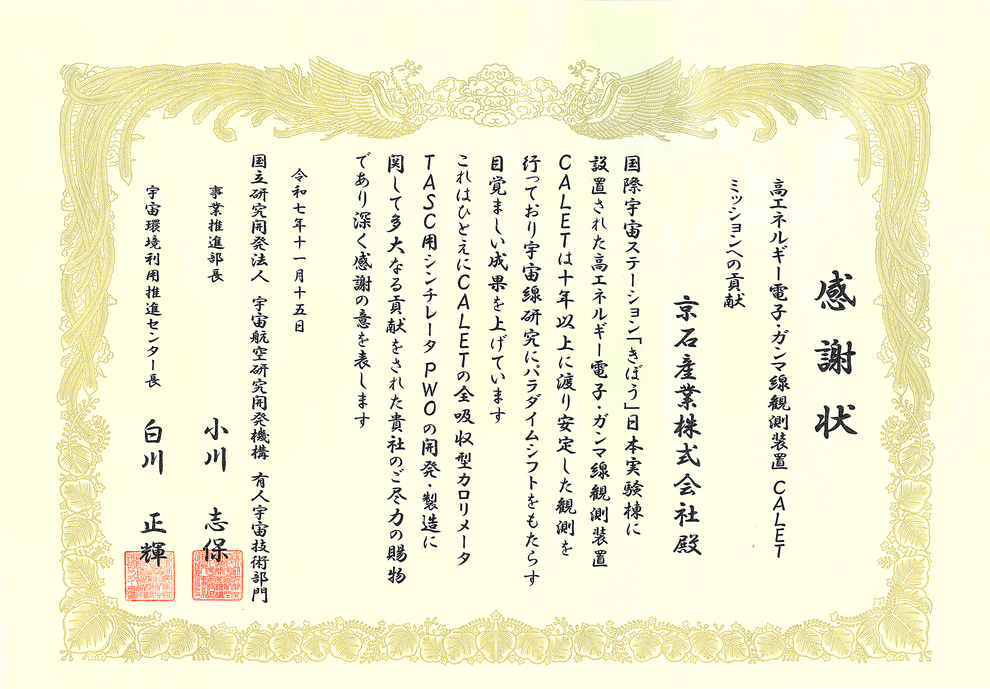 感謝状
高エネルギー電子・ガンマ線観測装置 CALET
ミッションへの貢献
京石産業株式会社殿
国際宇宙ステーション「きぼう」日本実験棟に
設置された高エネルギー電子・ガンマ線観測装置
CALETは十年以上に渡り安定した観測を
行っており宇宙線研究にパラダイムシフトをもたらす
目覚ましい成果を上げています
これはひとえにCALETの全吸収型カロリメータ
TASC用シンチレータ PWOの開発・製造に
関して多大なる貢献をされた貴社のご尽力の賜物
であり深く感謝の意を表します
令和七年十一月十五日
国立研究開発法人 宇宙航空研究開発機構 有人宇宙技術部門
事業推進部長 小川 志保
宇宙環境利用推進センター長 白川 正輝